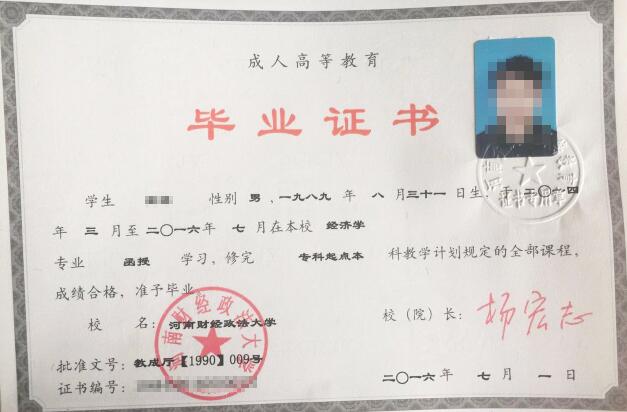 成人高等教育
毕业证书
学生 性别 男，一九八九 年 八 月三十一日生，于 二〇一四
年 三 月至 二〇一六年 七 月在本校 经济学
专业 函授 学习，修完 专科起点本 科教学计划规定的全部课程，
成绩合格，准予毕业。
校 名：河南财经政法大学
校（院）长：杨宏志
批准文号：教成厅【1990】009号
证书编号：
二〇一六年 七 月 一 日
河南财经政法大学
证书专用章